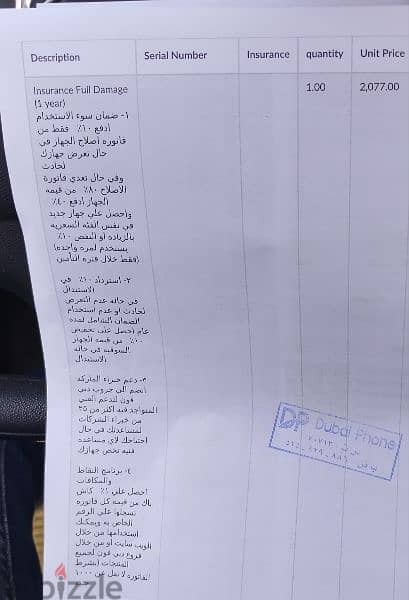 Description Serial Number Insurance quantity Unit Price
Insurance Full Damage 1.00 2,077.00
(1 year)
١- ضمان سوء الاستخدام
أدفع ١٠٪ فقط من
فاتورة إصلاح الجهاز في
حال تعرض جهازك
لحادث
وفي حال تعدي فاتورة
الاصلاح ٨٠٪ من قيمه
الجهاز ادفع ٤٠٪
واحصل علي جهاز جديد
في نفس الفئه السعريه
بالزياده أو النقص ١٠٪
(يستخدم لمره واحده
فقط خلال فتره التأمين)
٢- استرداد ١٠٪ في
الاستبدال
في حاله عدم التعرض
لحادث او عدم استخدام
الضمان الشامل لمده
عام احصل علي تخفيض
١٠٪ من قيمه الجهاز
السوقيه في حاله
الاستبدال
٣- دعم خبراء الماركه
انضم الي جروب دبي
فون للدعم الفني
المتواجد فيه اكثر من ٢٥
من خبراء الشركات
لمساعدتك في حال
احتياجك لاي مساعده
فنيه تخص جهازك
٤- برنامج النقاط
والمكافات
احصل علي ١٪ كاش
باك من قيمه كل فاتوره
تسجلها علي الرقم
الخاص به ويمكنك
إستخدامها من خلال
الويب سايت أو من خلال
فروع دبي فون لجميع
المنتجات بشرط
الفاتوره لا تقل عن ١٠٠٠
DP Dubai Phone
bizzle